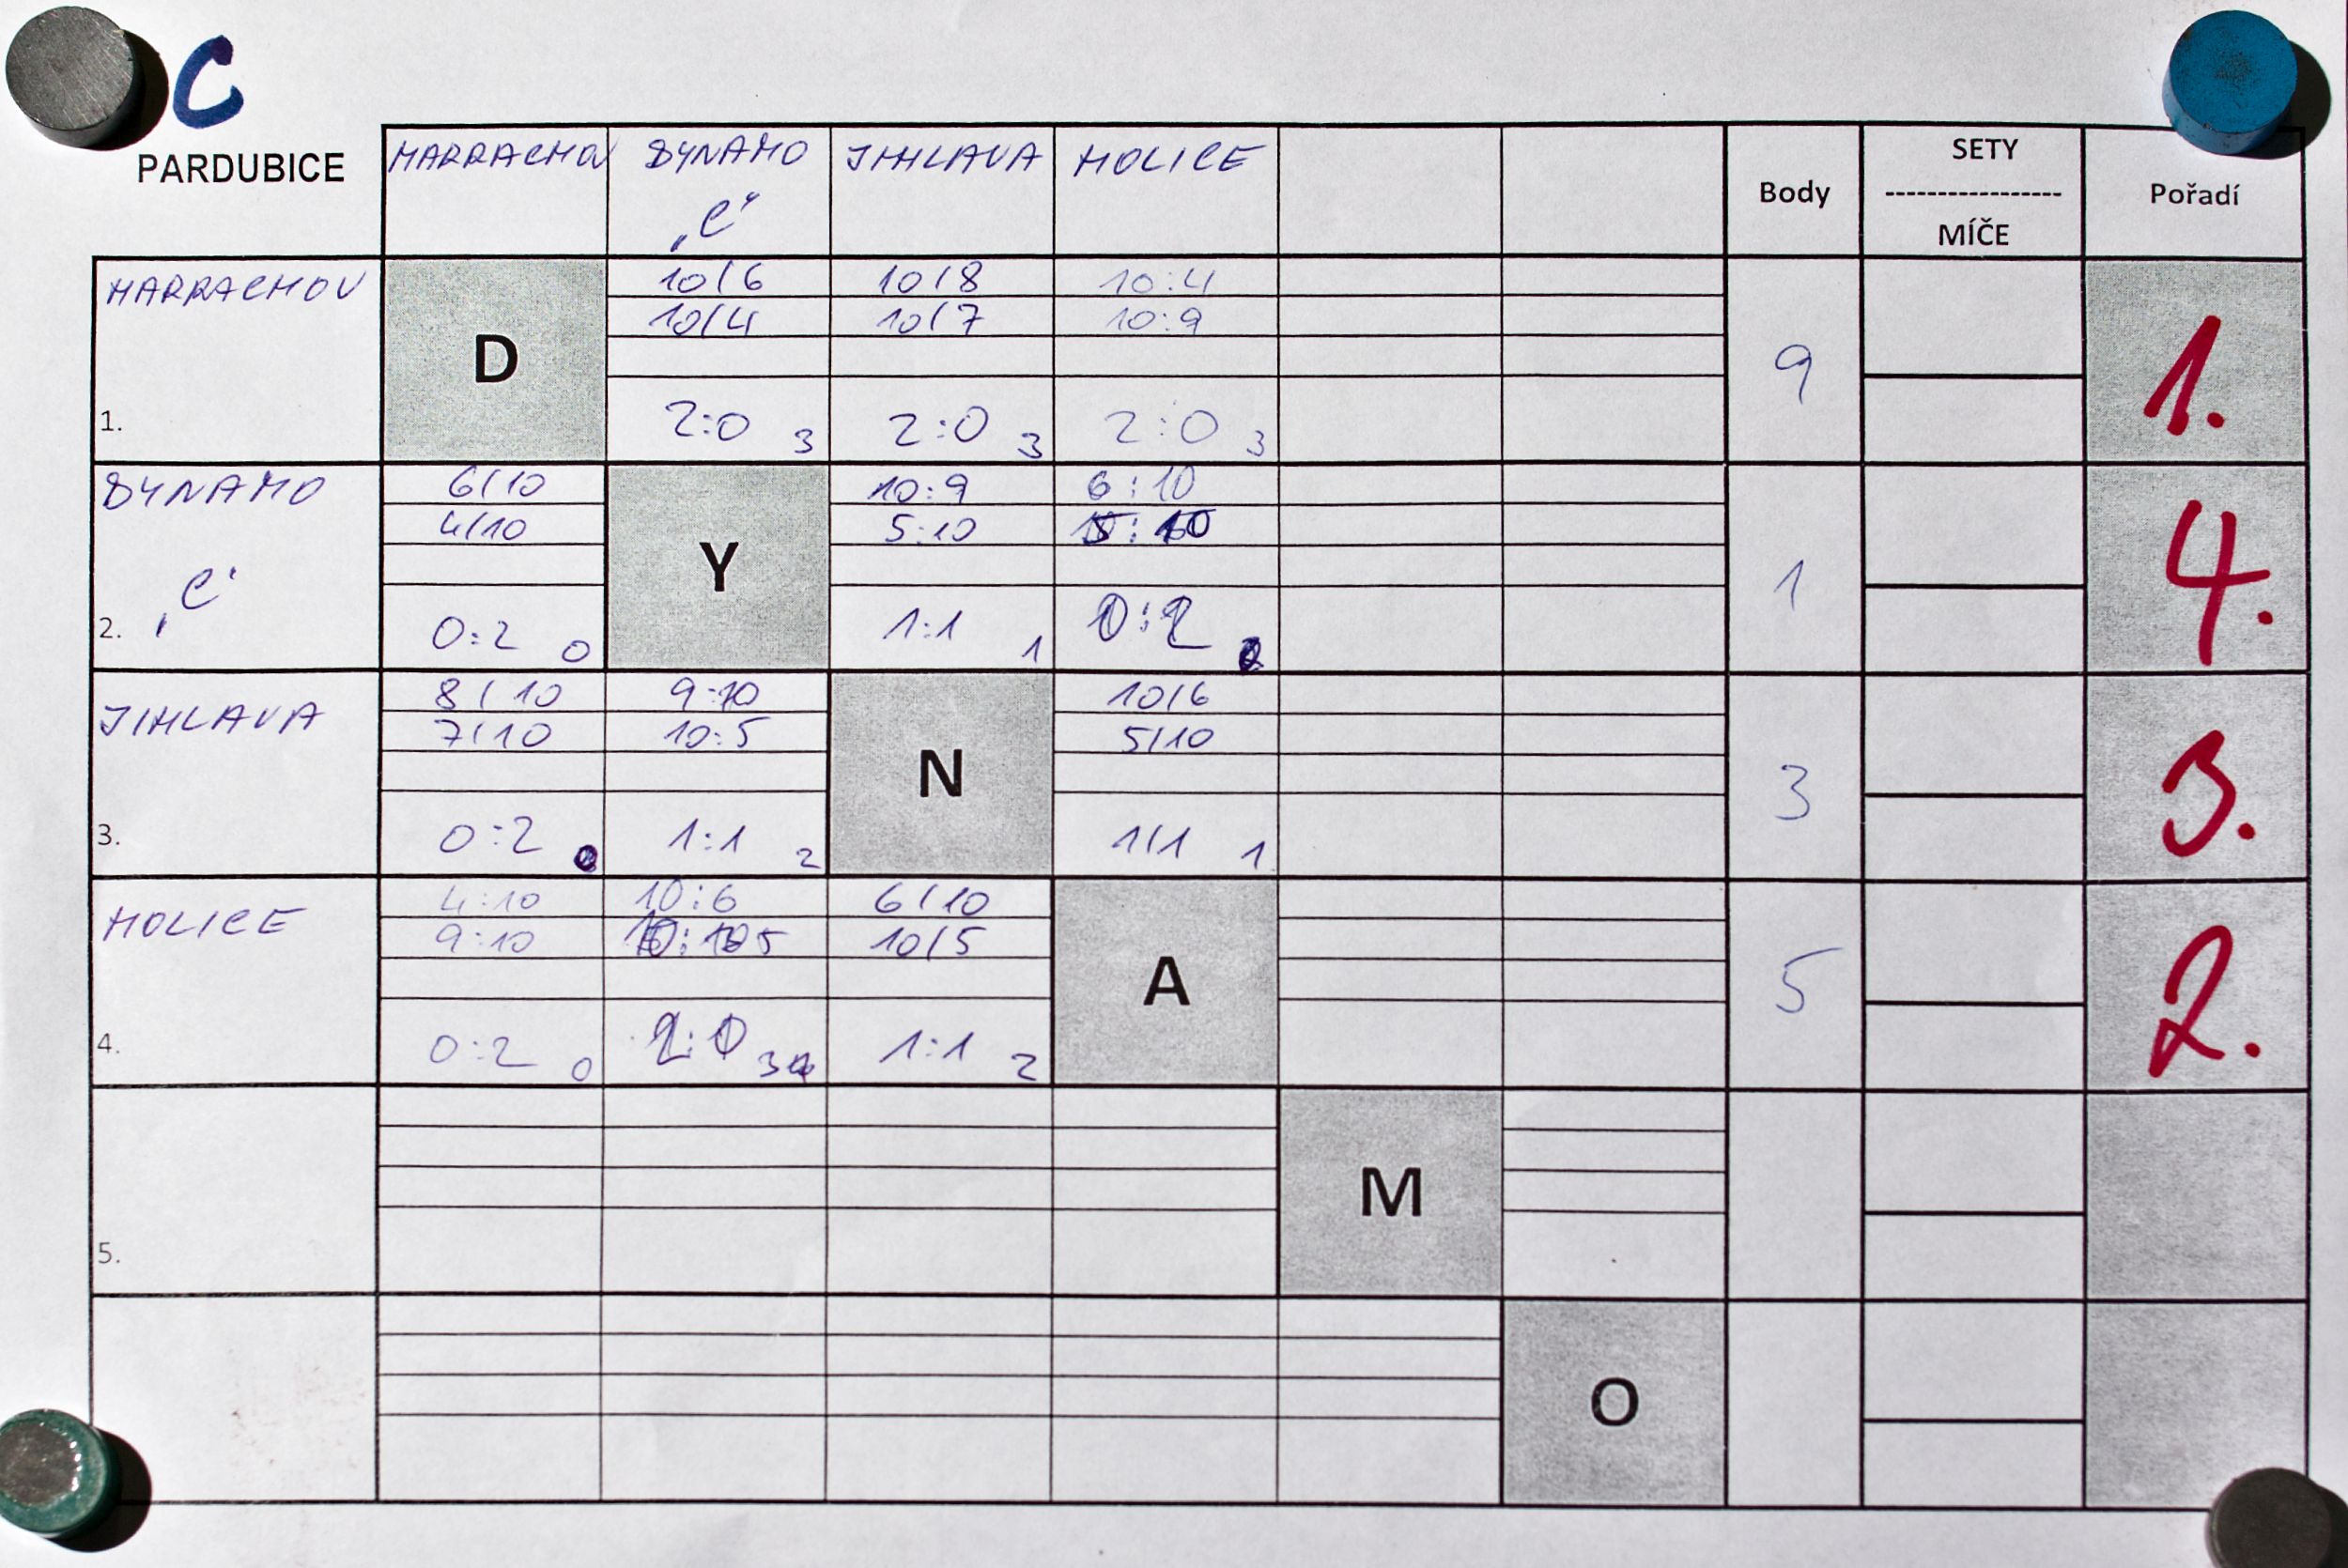 C
PARDUBICE
HARRACHOV DYNAMO JIHLAVA HOLICE
„C"
Body
SETY
-----------------
MÍČE
Pořadí
HARRACHOV
1.
D
10/6 10/8 10:4
10/4 10/7 10:9
2:0 3 2:0 3 2:0 3
9
1.
DYNAMO
„C"
2.
6/10 10:9 6:10
4/10 5:10 5:10
0:2 0 1:1 1 0:2
Y
1
4.
JIHLAVA
3.
8/10 9:10 10/6
7/10 10:5 5/10
0:2 0 1:1 2 1/1 1
N
3
3.
HOLICE
4.
4:10 10:6 6/10
9:10 10:5 10/5
0:2 0 2:0 3 1:1 2
A
5
2.
5.
M
O